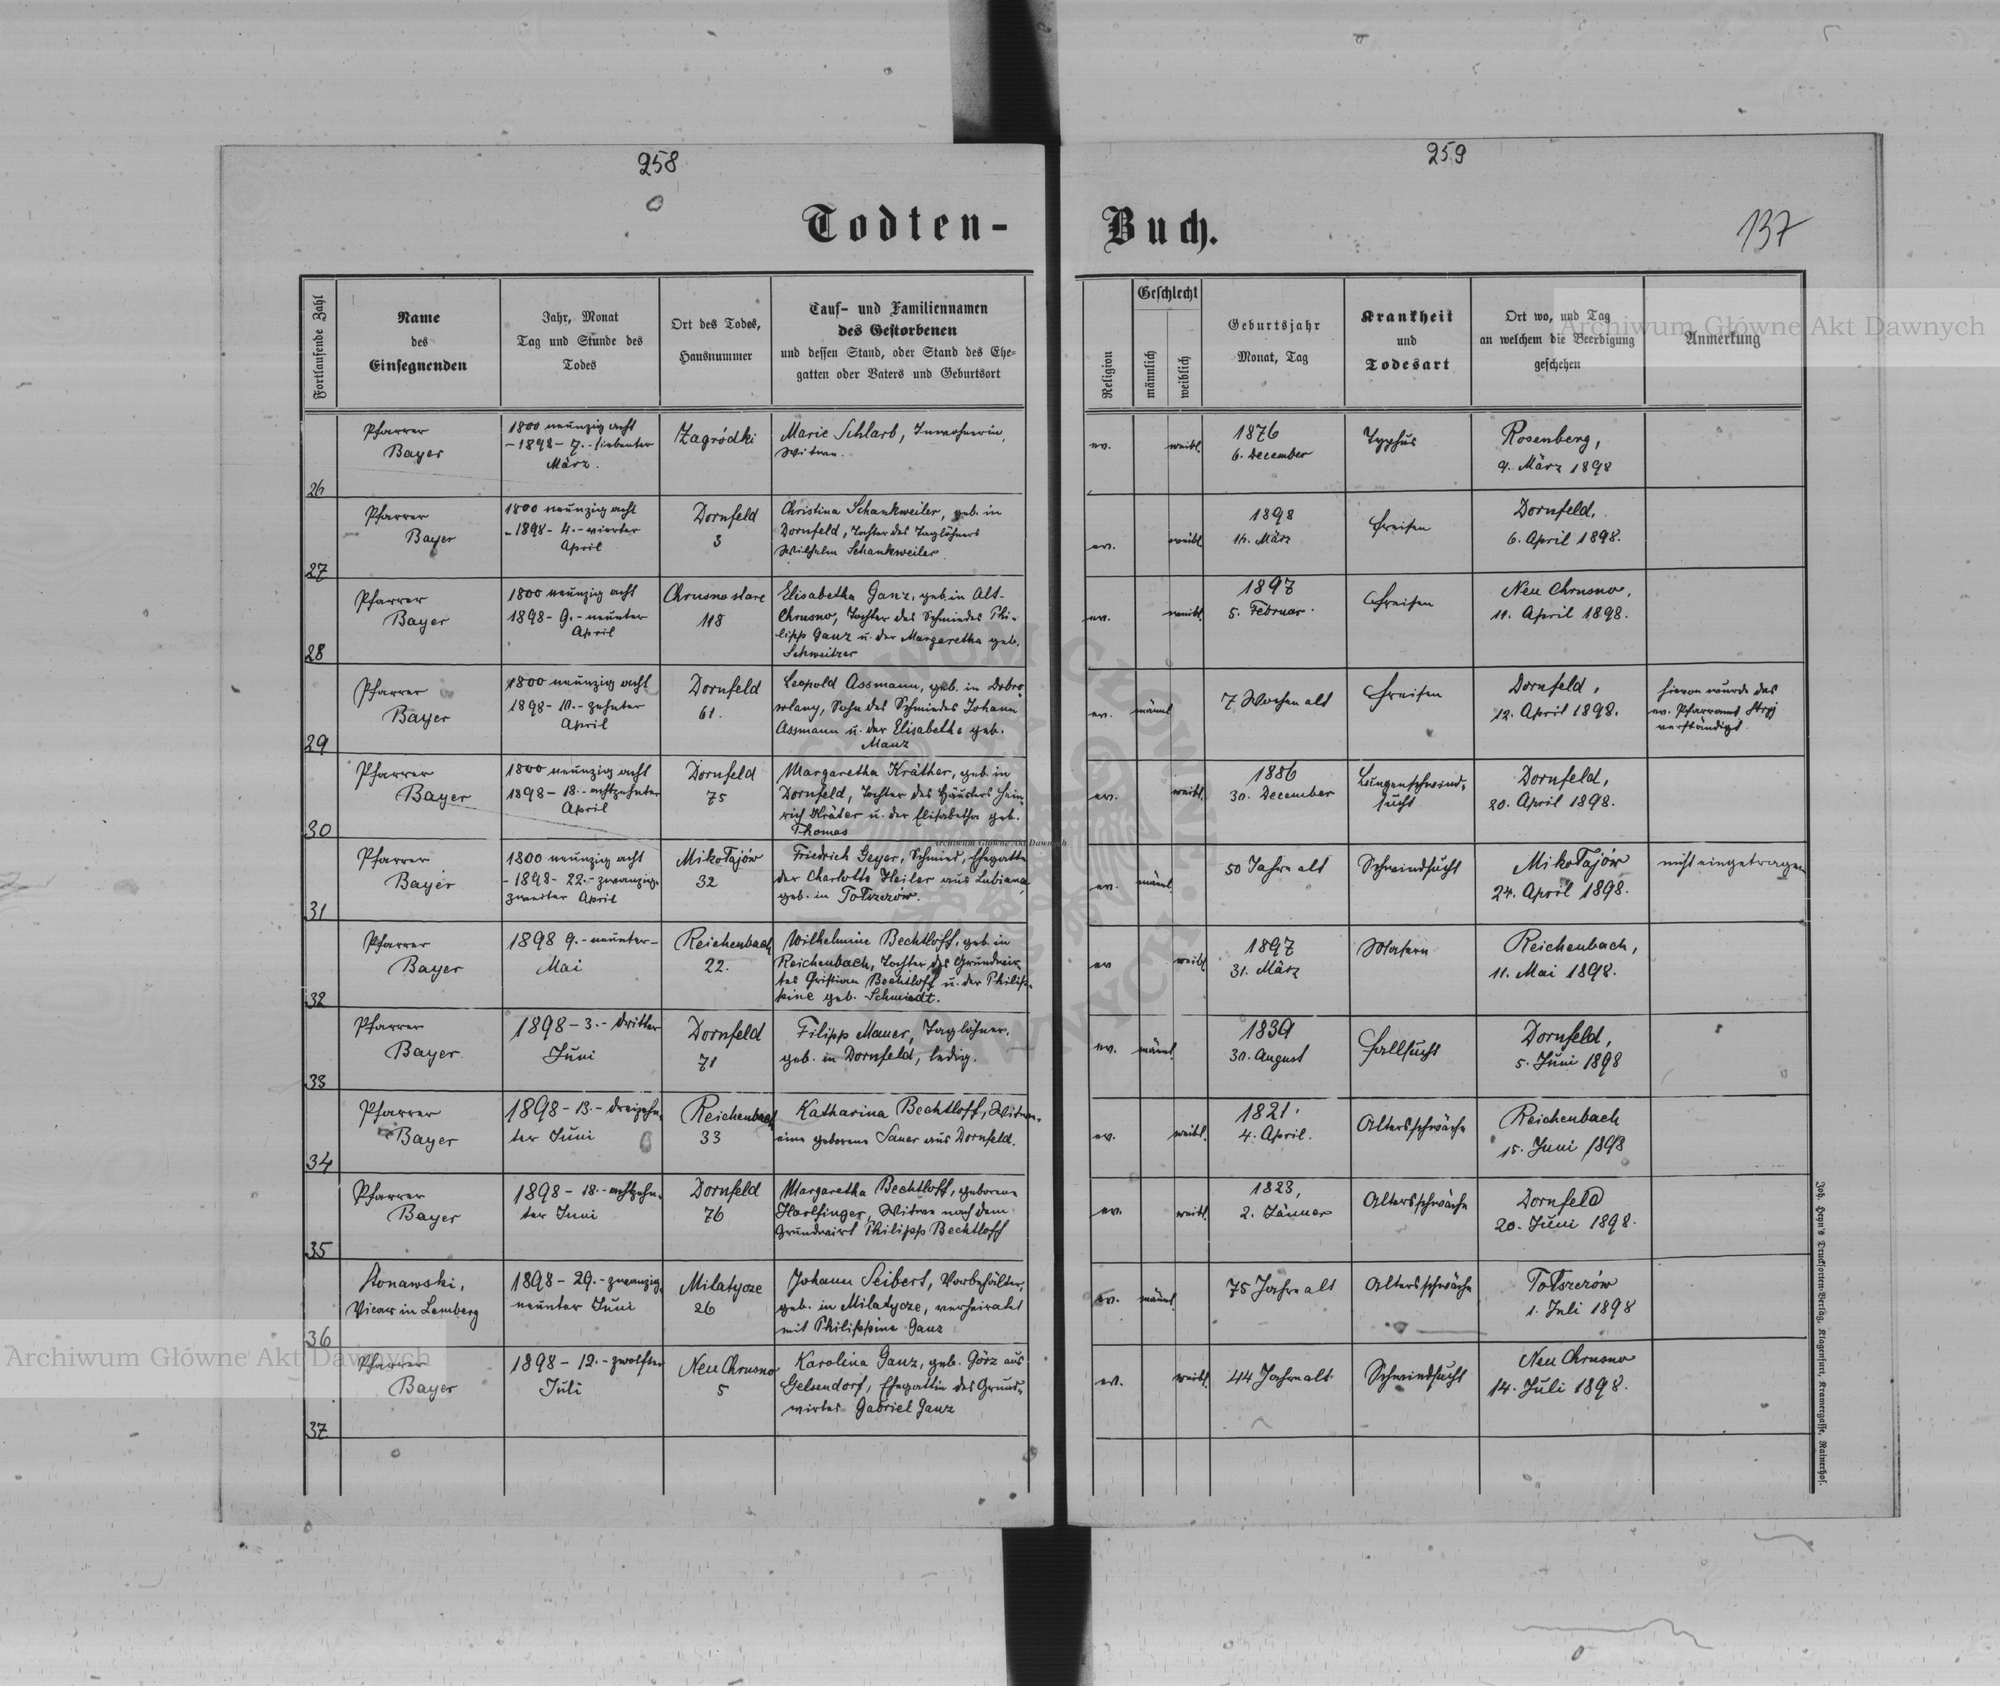 258
259
137
Todten-Buch.
Fortlaufende Zahl
Name
des
Einsegnenden
Jahr, Monat
Tag und Stunde des
Todes
Ort des Todes,
Hausnummer
Tauf- und Familiennamen
des Gestorbenen
und dessen Stand, oder Stand des Ehe-
gatten oder Vaters und Geburtsort
Religion
Geschlecht
männlich
weiblich
Geburtsjahr
Monat, Tag
Krankheit
und
Todesart
Ort wo, und Tag
an welchem die Beerdigung
geschehen
Anmerkung
26
Pfarrer
Bayer
1800 neunzig acht
-1898- 7.- siebenter
März.
Zagródki
Marie Schlarb, Inwohnerin,
Witwe.
ev.
weibl.
1876
6. December
Typhus
Rosenberg,
9. März 1898
27
Pfarrer
Bayer
1800 neunzig acht
-1898- 4.- vierter
April
Dornfeld
3
Christina Schankweiler, geb. in
Dornfeld, Tochter des Taglöhners
Wilhelm Schankweiler
ev.
weibl.
1898
14. März
Fraisen
Dornfeld,
6. April 1898.
28
Pfarrer
Bayer
1800 neunzig acht
1898- 9.- neunter
April
Chrusno stare
118
Elisabetha Ganz, geb. in Alt-
Chrusno, Tochter des Schmiedes Phi-
lipp Ganz u. der Margaretha geb.
Schweitzer
ev.
weibl.
1897
5. Februar.
Fraisen
Neu Chrusno,
11. April 1898.
29
Pfarrer
Bayer
1800 neunzig acht
1898- 10.- zehnter
April
Dornfeld
61.
Leopold Assmann, geb. in Dobro-
wlany, Sohn des Schmiedes Johann
Assmann u. der Elisabetha geb.
Manz
ev.
männl.
7 Wochen alt
Fraisen
Dornfeld,
12. April 1898.
hievon wurde das
ev. Pfarramt Stryj
verständigt.
30
Pfarrer
Bayer
1800 neunzig acht
1898- 18.- achtzehnter
April
Dornfeld
75
Margaretha Kräther, geb. in
Dornfeld, Tochter des Häuslers Hein-
rich Kräter u. der Elisabetha geb.
Thomas
ev.
weibl.
1886
30. December
Lungenschwind-
sucht
Dornfeld,
20. April 1898.
31
Pfarrer
Bayer
1800 neunzig acht
-1898- 22.- zwanzig-
zweiter April
Mikołajów
32
Friedrich Geyer, Schmied, Ehegatte
der Charlotte Heiler aus Lubiana,
geb. in Tołszczów.
ev.
männl.
50 Jahre alt
Schwindsucht
Mikołajów
24. April 1898.
nicht eingetragen
32
Pfarrer
Bayer
1898 9.- neunter-
Mai
Reichenbach
22.
Wilhelmine Bechtloff, geb. in
Reichenbach, Tochter des Grundwir-
tes Christian Bechtloff u. der Philip-
pine geb. Schmiedt.
ev
weibl.
1897
31. März
Masern
Reichenbach,
11. Mai 1898.
33
Pfarrer
Bayer.
1898- 3.- dritter
Juni
Dornfeld
71
Filipp Mauer, Taglöhner,
geb. in Dornfeld, ledig.
ev.
männl.
1839
30. August
Fallsucht
Dornfeld,
5. Juni 1898
34
Pfarrer
Bayer
1898- 13.- dreizehn-
ter Juni
Reichenbach
33
Katharina Bechtloff, Witwe,
eine geborene Sauer aus Dornfeld.
ev.
weibl.
1821
4. April.
Altersschwäche
Reichenbach
15. Juni 1898
35
Pfarrer
Bayer
1898- 18.- achtzehn-
ter Juni
Dornfeld
76
Margaretha Bechtloff, geborene
Harlfinger, Witwe nach dem
Grundwirt Philipp Bechtloff
ev.
weibl.
1823,
2. Jänner
Altersschwäche
Dornfeld
20. Juni 1898.
36
Stonawski,
Vicar in Lemberg
1898- 29.- zwanzig-
neunter Juni
Milatycze
26
Johann Seibert, Vorbehälter,
geb. in Milatycze, verheiratet
mit Philippine Ganz
ev.
männl.
75 Jahre alt
Altersschwäche
Tołszczów
1. Juli 1898
37
Pfarrer
Bayer
1898- 12.- zwölfter
Juli
Neu Chrusno
5
Karolina Ganz, geb. Görz aus
Gelsendorf, Ehegattin des Grund-
wirtes Gabriel Ganz
ev.
weibl.
44 Jahre alt
Schwindsucht
Neu Chrusno
14. Juli 1898.
Joh. Heyn's Drucksorten-Verlag, Klagenfurt, Kramergasse, Rainerhof.
Archiwum Główne Akt Dawnych
Archiwum Główne Akt Dawnych
Archiwum Główne Akt Dawnych